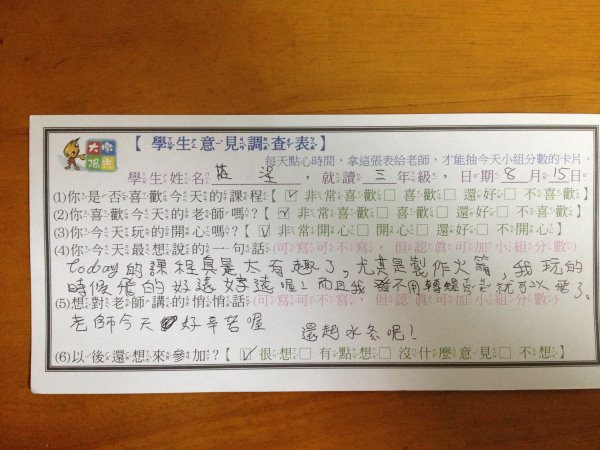 大家陽光
【學生意見調查表】
每天點心時間，拿這張表給老師，才能抽今天小組分數的卡片。
學生姓名 莊 淫，就讀 三 年級，日期 8 月 15 日
(1)你是否喜歡今天的課程【☑非常喜歡□喜歡□還好□不喜歡】
(2)你喜歡今天的老師嗎？【☑非常喜歡□喜歡□還好□不喜歡】
(3)你今天玩的開心嗎？【☑非常開心□開心□還好□不開心】
(4)你今天最想說的一句話(可寫可不寫，但認真可加小組分數)
today的課程真是太有趣了，尤其是製作火箭，我玩的
時候飛的好遠好遠喔！而且我發不用轉
(5)想對老師講的悄悄話(可寫可不寫，但認真可加小組分數)
老師今天好辛苦喔
還起水冬呢！
(6)以後還想來參加？【☑很想□有點想□沒什麼意見□不想】